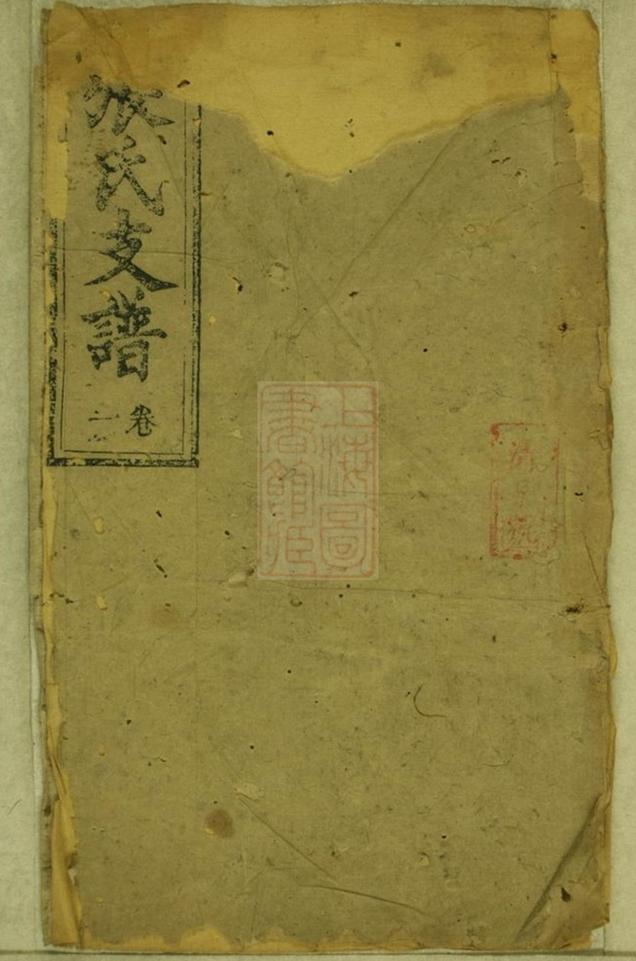 張氏支譜
卷二
上海圖
書館藏